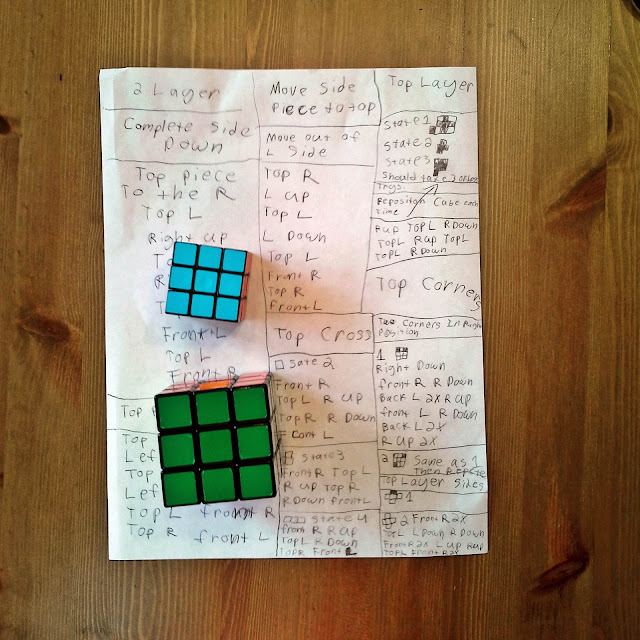 2 Layer
Complete Side
Down
Top piece
To the R
Top L
Right up
Front L
Top L
Front R
Top
Top
Lef
Top
Lef
Top L front R
Top R front L
Move Side
piece to top
Move out of
L Side
Top R
L up
Top L
L Down
Top L
Front R
Top R
front L
Top Cross
State 2
Front R
Top L R up
Top R R Down
Front L
State 3
Front R Top L
R up Top R
R Down front L
State 4
front R R up
Top L R Down
Top R Front L
Top Layer
State 1
State 2
State 3
Should take 3 or less
Trys.
Reposition Cube each
time
R up Top L R Down
Top L R up Top L
Top L R Down
Top Corners
Corners In Right
Position
1
Right Down
front R R Down
Back L 2x R up
front L R Down
Back L 2x
R up 2x
2 Same as 1
Then
Top Layer Sides
1
2 Front R 2x
Top L L Down R Down
Front R 2x L up R up
Top L front R 2x